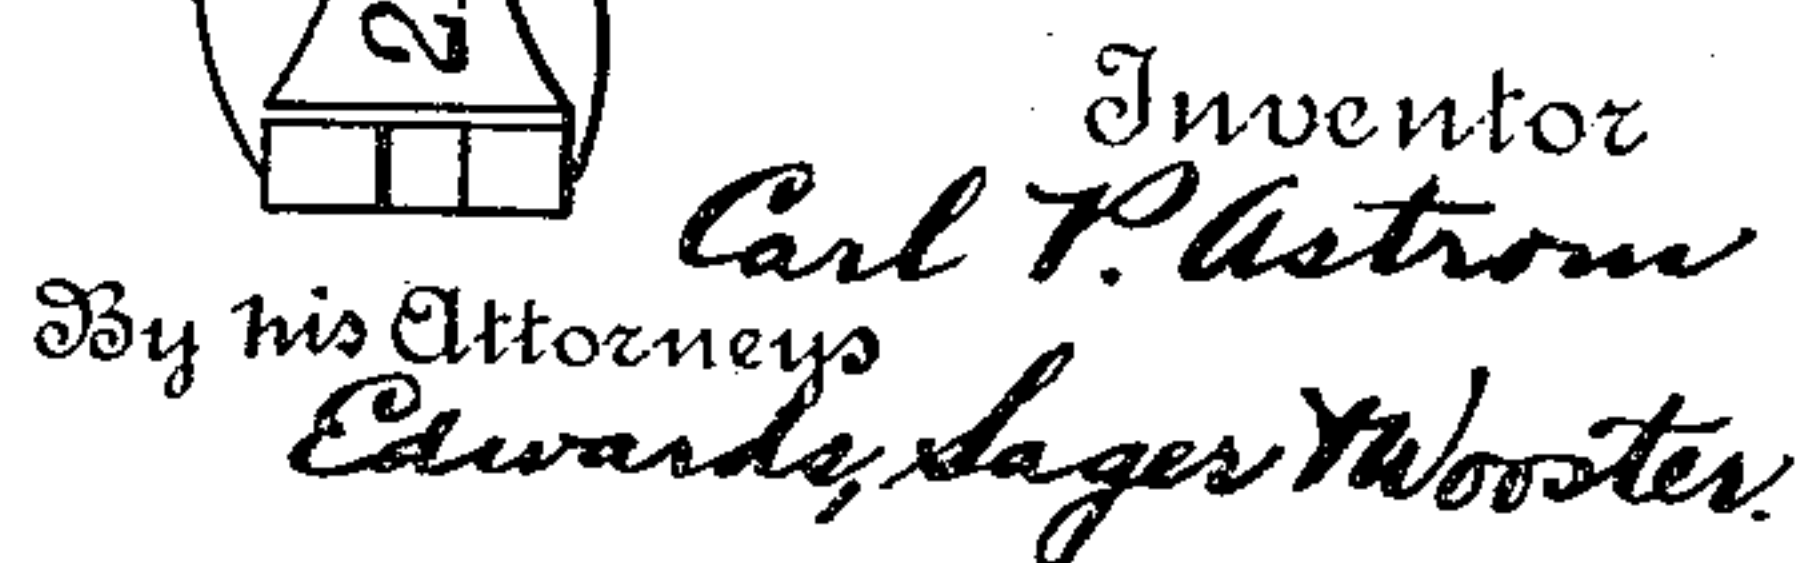 2.
Inventor
Carl P. Astrom
By his Attorneys
Edwards, Sager & Wooster.